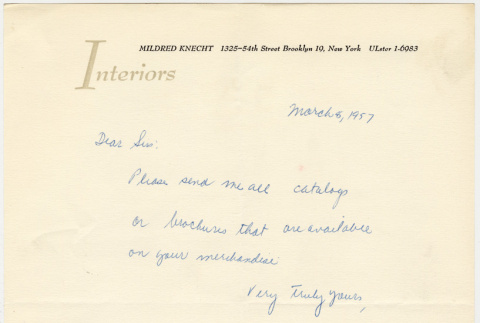 MILDRED KNECHT 1325-54th Street Brooklyn 19, New York ULster 1-6983
Interiors
March 8, 1957
Dear Sirs:
Please send me all catalogs
or brochures that are available
on your merchandise
Very Truly Yours,